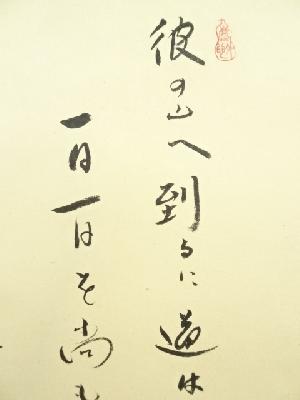 彼の山へ到るに道は
一日一日を尚も